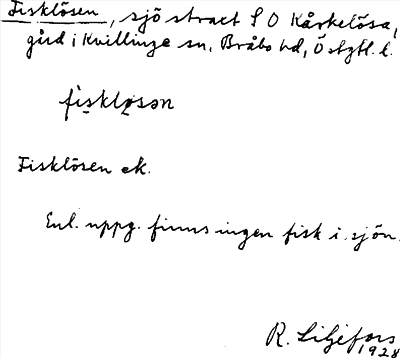 Fisklösen, sjö strax t S O Kårkelösa,
gård i Kvillinge sn, Bråbo hd, Östgtl. l.
fiskløsən
Fisklösen ek.
Enl. uppg. finns ingen fisk i sjön.
R. Liljefors
1928